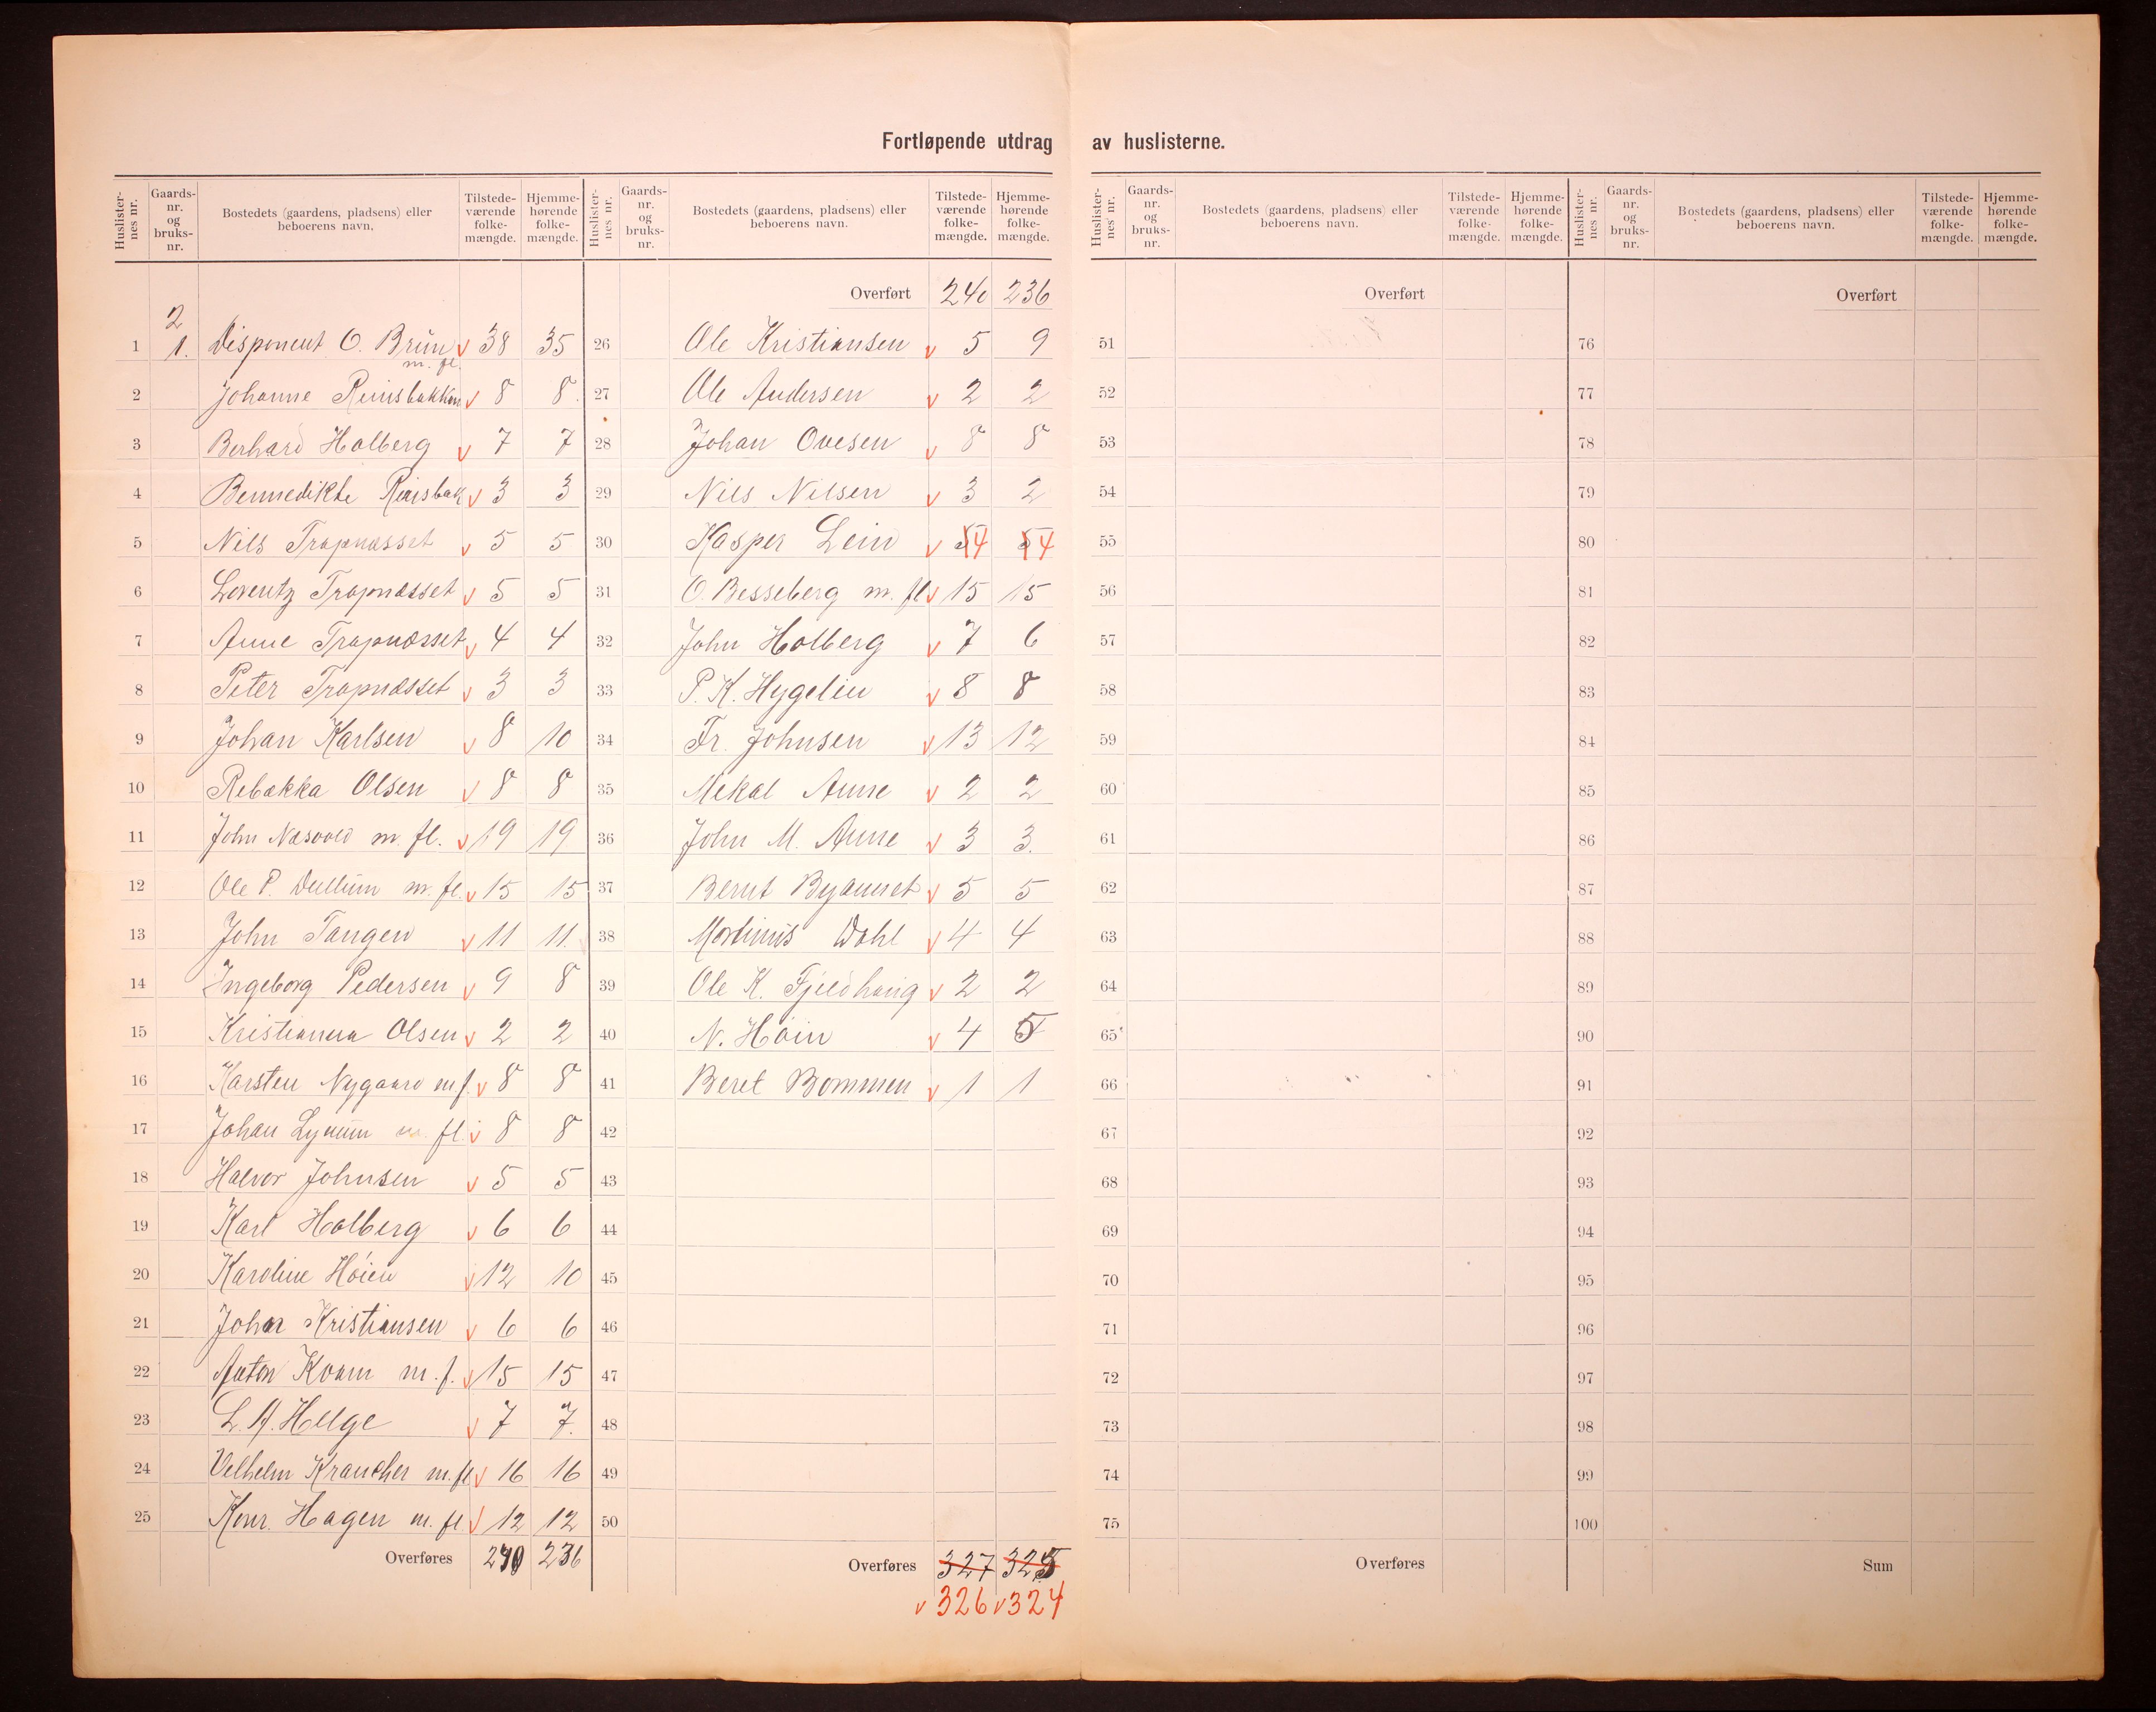 Fortløpende utdrag av huslisterne.
Huslister-nes nr. Gaards-nr. og bruks-nr. Bostedets (gaardens, pladsens) eller beboerens navn. Tilstede-værende folke-mængde. Hjemme-hørende folke-mængde.
2
1 1. Disponent O. Brun m. fl. v 38 35
2 Johanne Reinsbakken v 8 8
3 Berhard Holberg v 7 7
4 Bennedikte Reinsbak v 3 3
5 Nils Trapnæsset v 5 5
6 Lorentz Trapnæsset v 5 5
7 Anne Trapnæsset v 4 4
8 Peter Trapnæsset v 3 3
9 Johan Karlsen v 8 10
10 Rebækka Olsen v 8 8
11 John Næsvold m. fl. v 19 19
12 Ole P. Dullum m. fl. v 15 15
13 John Tangen v 11 11.
14 Ingeborg Pedersen v 9 8
15 Kristianna Olsen v 2 2
16 Karsten Nygaard m f. v 8 8
17 Johan Lynum m. fl. v 8 8
18 Halvor Johnsen v 5 5
19 Karl Holberg v 6 6
20 Karoline Höien v 12 10
21 Johan Kristiansen v 6 6
22 Anton Kvam m. f. v 15 15
23 L. A. Helge v 7 7.
24 Velhelm Krancher m. fl v 16 16
25 Konr. Hagen m. fl. v 12 12
Overføres 240 236
Huslister-nes nr. Gaards-nr. og bruks-nr. Bostedets (gaardens, pladsens) eller beboerens navn. Tilstede-værende folke-mængde. Hjemme-hørende folke-mængde.
Overført 240 236
26 Ole Kristiansen v 5 9
27 Ole Andersen v 2 2
28 Johan Ovesen v 8 8
29 Nils Nilsen v 3 2
30 Kasper Lein v 5 4 5 4
31 O. Besseberg m. fl v 15 15
32 John Holberg v 7 6
33 P. K. Hygelin v 8 8
34 Fr. Johnsen v 13 12
35 Mekal Aune v 2 2
36 John M. Aune v 3 3.
37 Bernt Byaunet v 5 5
38 Martinus Dahl v 4 4
39 Ole K. Fjeldhaug v 2 2
40 N. Höin v 4 5
41 Beret Bommen v 1 1
42
43
44
45
46
47
48
49
50
Overføres 327 325
v 326 v 324
Huslister-nes nr. Gaards-nr. og bruks-nr. Bostedets (gaardens, pladsens) eller beboerens navn. Tilstede-værende folke-mængde. Hjemme-hørende folke-mængde.
Overført
51
52
53
54
55
56
57
58
59
60
61
62
63
64
65
66
67
68
69
70
71
72
73
74
75
Overføres
Huslister-nes nr. Gaards-nr. og bruks-nr. Bostedets (gaardens, pladsens) eller beboerens navn. Tilstede-værende folke-mængde. Hjemme-hørende folke-mængde.
Overført
76
77
78
79
80
81
82
83
84
85
86
87
88
89
90
91
92
93
94
95
96
97
98
99
100
Sum